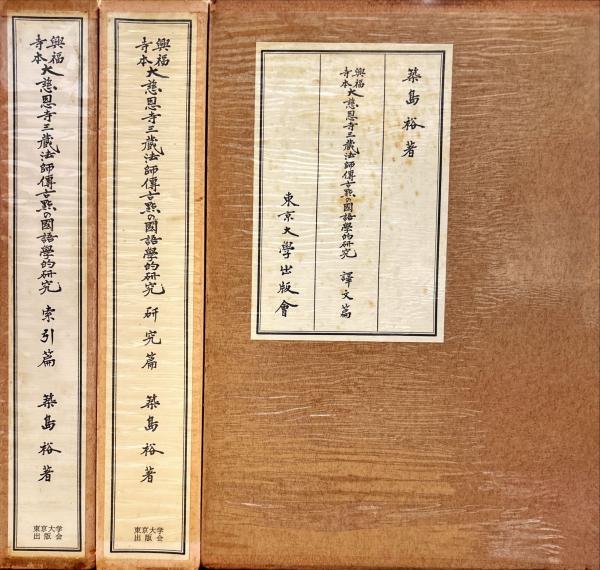 興福寺本大慈恩寺三藏法師傳古點の國語學的研究 索引篇 築島裕著
東京大学出版会
興福寺本大慈恩寺三藏法師傳古點の國語學的研究 研究篇 築島裕著
東京大学出版会
築島裕著
興福寺本大慈恩寺三藏法師傳古點の國語學的研究 譯文篇
東京大學出版會